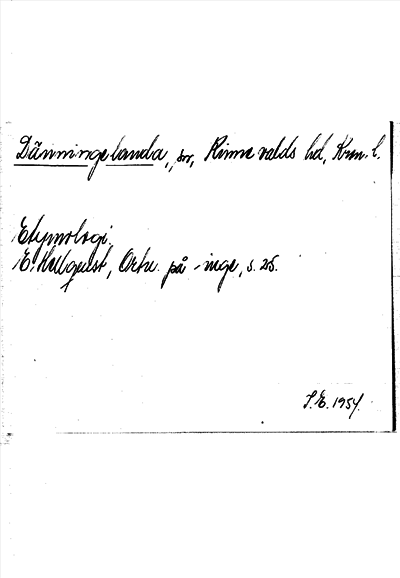 Dänningelanda, sn, Kinnevalds hd, Kron. l.
Etymologi.
E. Hellquist, Ortn. på -inge, s. 25.
S.E. 1954.